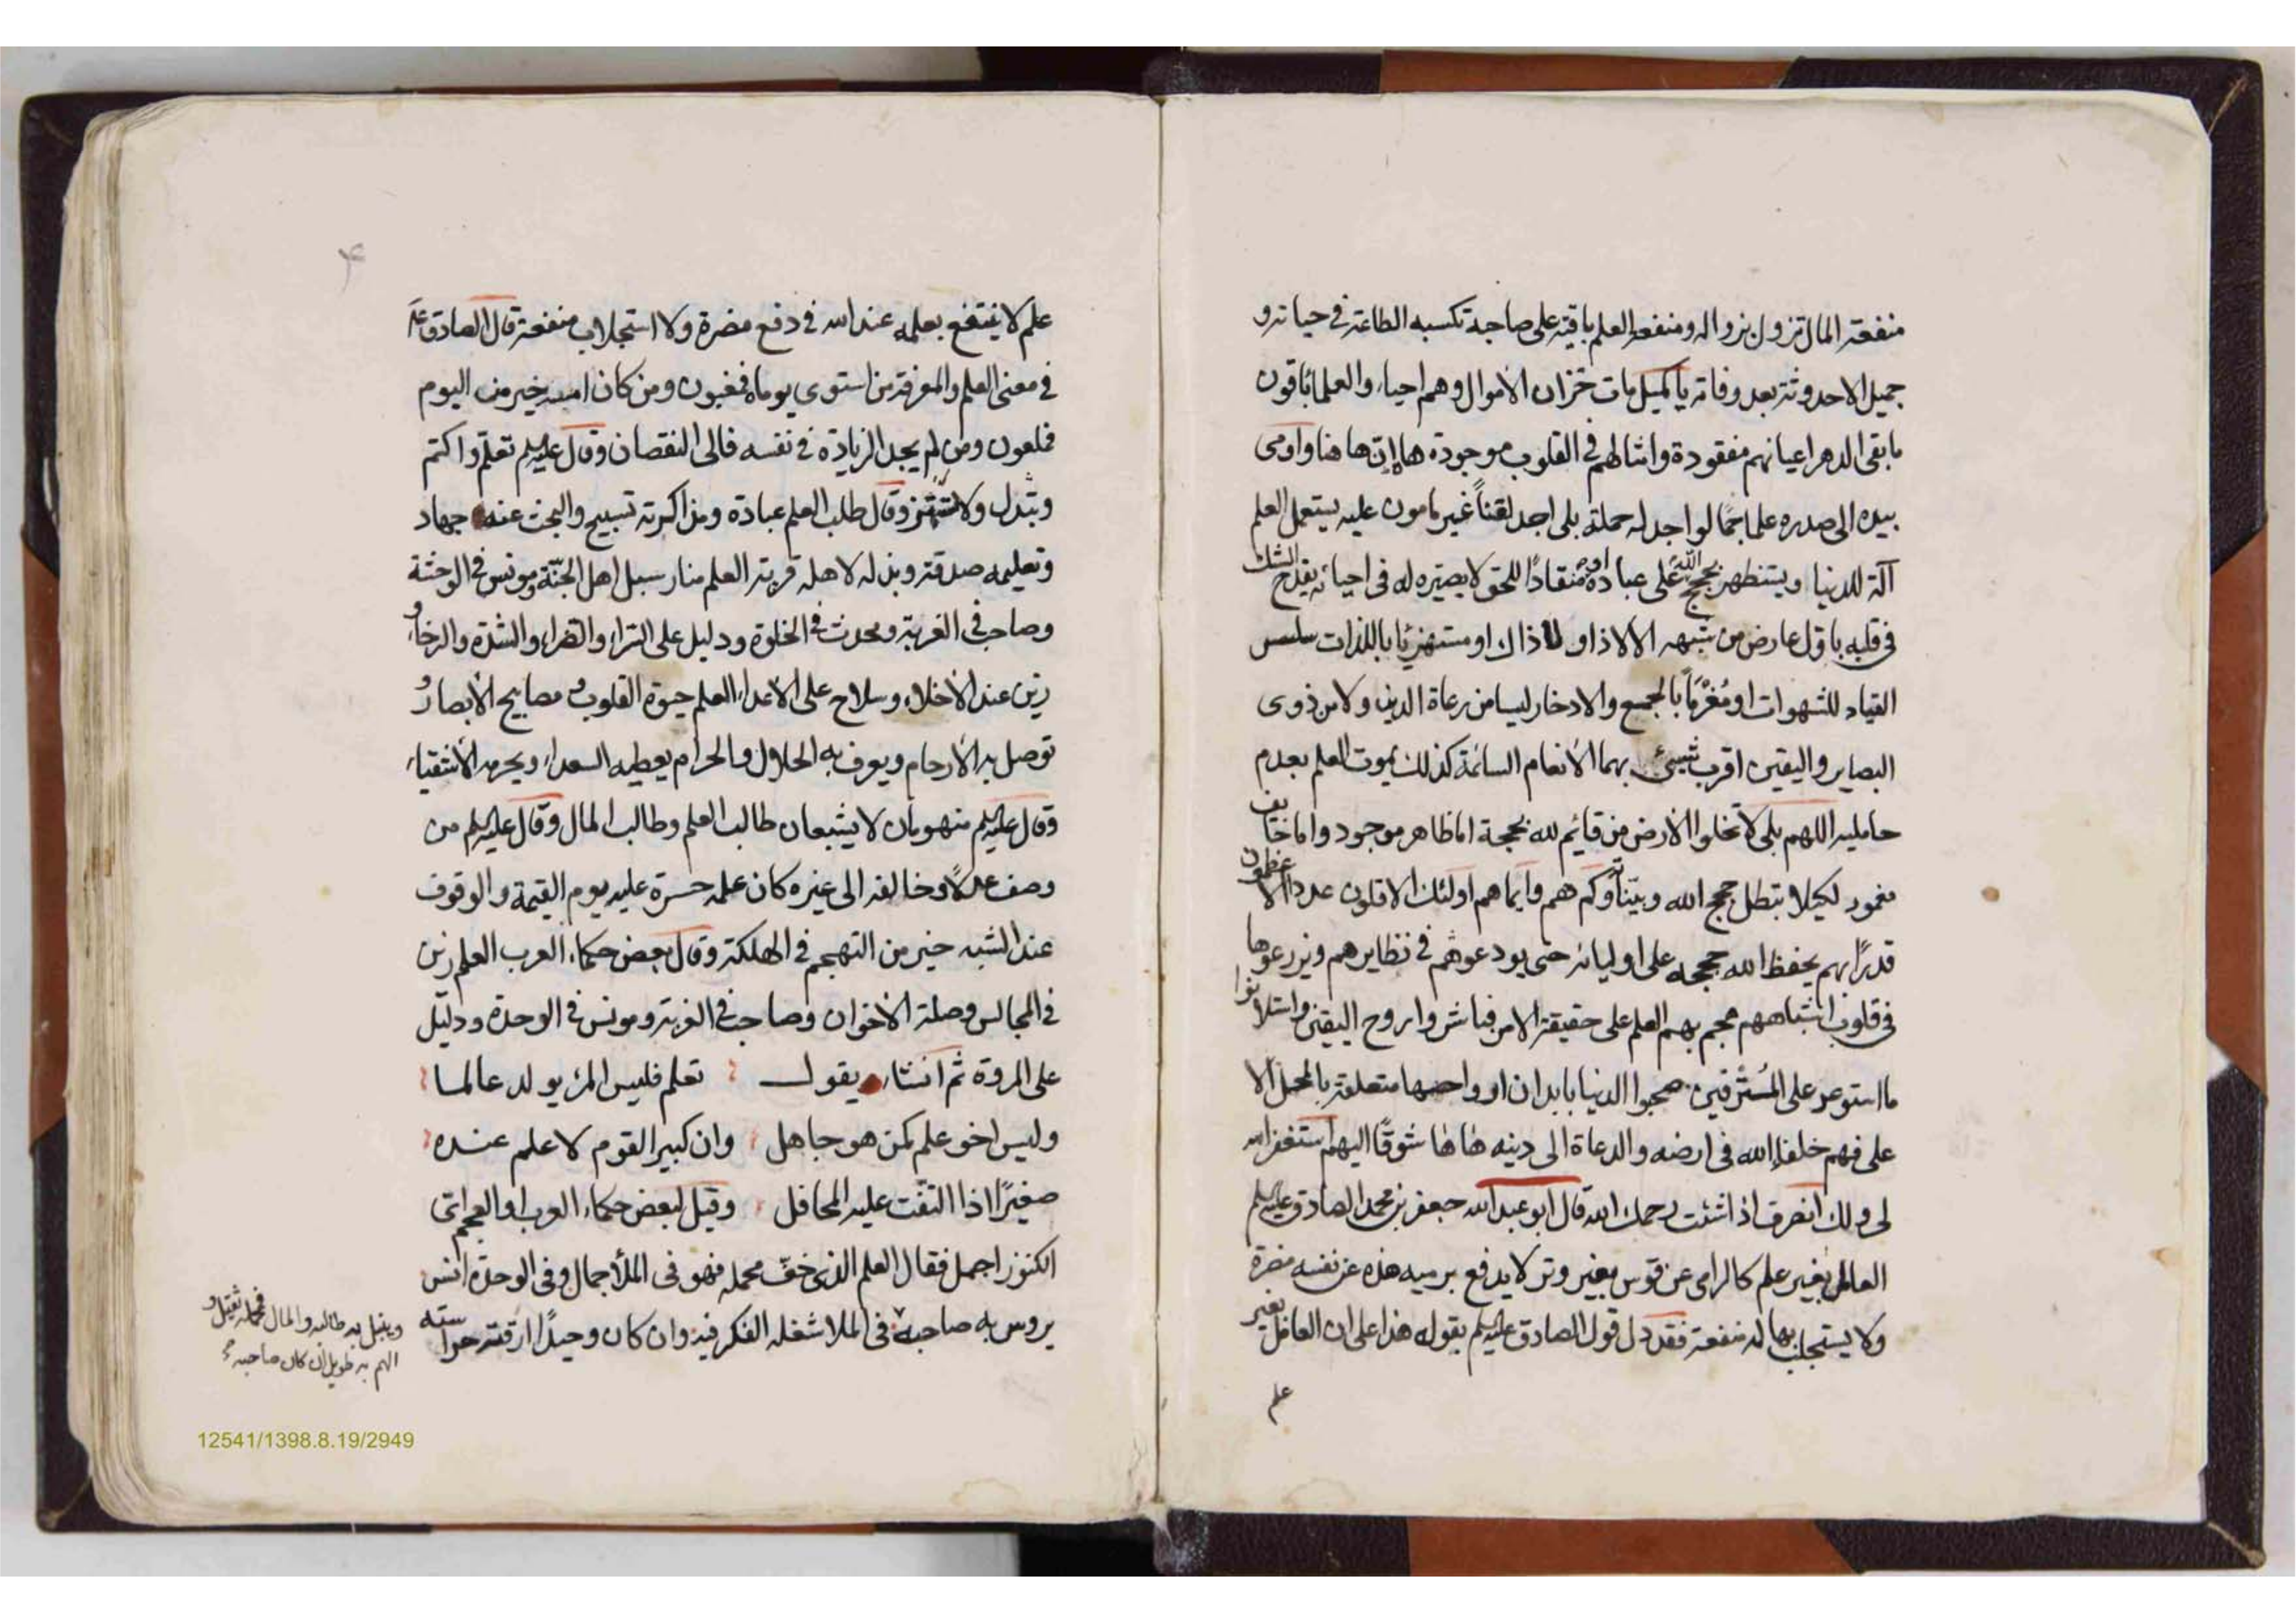 منفعة المال تزول بزواله ومنفعة العلم باقية على صاحبه تكسبه الطاعة في حياته و
جميل الاحدوثة بعد وفاته يا كميل مات خزان الأموال وهم احياء والعلماء باقون
ما بقى الدهر اعيانهم مفقودة وامثالهم في القلوب موجودة ها إنّ ها هنا واومى
بيده الى صدره علما جمّا لو اجد له حملة بلى اجد لقناً غير مامون عليه يستعمل العلم
آلة للدنيا ويستظهر بحجج الله على عباده او منقادًا للحق لا بصيرة له في احيائه يقدح الشك
في قلبه باول عارض من شبهه الا لا ذا او لا ذاك او مستهزئا باللذات سلس
القياد للشهوات او مُغْرَماً بالجمع والادخار ليسا من رعاة الدين ولا من ذوى
البصاير واليقين اقرب شيئ بهما الأنعام السائمة كذلك يموت العلم بعدم
حامليه اللهم بلى لا تخلوا الأرض من قائم لله بحجة اما ظاهر موجود واما خايف
مغمود لكيلا تبطل حجج الله وبيّناته وكم هم وايما هم اولئك الاقلون عددا الاعظمون
قدرًا بهم يحفظ الله حججه على اوليائه حتى يودعوهم في نظايرهم ويزرعوها
في قلوب اشباههم هجم بهم العلم على حقيقة الامر فباشروا روح اليقين واستلانوا
ما استوعر على المُسْرفين صحبوا الدنيا بابدان ارواحها متعلقة بالمحل الا
على فهم خلفاء الله في ارضه والدعاة الى دينه هاها شوقًا اليهم استغفر الله
لى ولك انصرف اذا شئت رحمك الله قال ابو عبد الله جعفر بن محمد الصادق عليه السلم
العامل بغير علم كالرامى عن قوس بغير وتر لا يدفع برميه هذه عن نفسه مضرة
ولا يستجلب بها له منفعة فقد دل قول الصادق عليه السلم بقوله هذا على ان العاقل بغير
علم
۴
علم لا ينتفع بعلمه عند الله في دفع مضرة ولا استجلاب منفعة قال الصادق ع
في معنى العلم والمعرفة من استوى يوماه فمغبون ومن كان امسه خير من اليوم
فملعون ومن لم يجد الزيادة في نفسه فالى النقصان وقال عليه السلم تعلّم واكتم
وقال طلب العلم عبادة ومذاكرته تسبيح والبحث عنه جهاد
وتعليمه صدقة وبذله لاهله قربة العلم منار سبل اهل الجنّة ومونس في الوحشة
وصاحب في الغربة ومحدث في الخلوة ودليل على السّراء والضراء والشدة والرخاء و
زين عند الأخلاء وسلاح على الاعداء العلم حيوة القلوب و مصابيح الأبصار و
توصل به الأرحام ويعرف به الحلال والحرام يعطيه السعداء ويحرمه الأشقياء
وقال عليه السلم منهومان لا يشبعان طالب العلم وطالب المال وقال عليه السلم من
وصف عدلًا وخالفه الى غيره كان علمه حسرة عليه يوم القيمة والوقوف
عند الشبه خير من التهجم في الهلكة وقال بعض حكماء العرب العلم زين
في المجالس وصلة الاخوان وصاحب في الغربة ومونس في الوحدة ودليل
على المروة ثم انشاء يقول تعلم فليس المرء يولد عالما
وليس اخو علم كمن هو جاهل وان كبير القوم لا علم عنده
صغيرًا اذا التفّت عليه المحافل وقيل لبعض حكماء العرب او العجم اى
الكنوز اجمل فقال العلم الذى خفّ محمله فهو في الملأ جمال وفى الوحدة انس
يروس به صاحبه في الملا شغله الفكر فيه وان كان وحيدًا ارقته حراسته
وينبل به طالبه والمال محمله ثقيل و
الهم به طويل ان كان صاحبه
12541/1398.8.19/2949